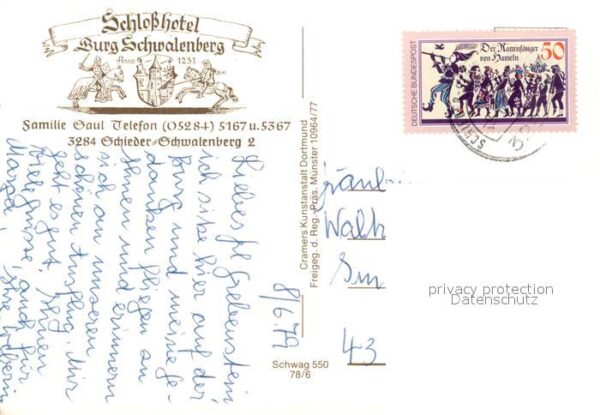 Schloßhotel
Burg Schwalenberg
Anno 1231
Familie Saul Telefon (05284) 5167 u. 5367
3284 Schieder-Schwalenberg 2
8/6.79
Liebes Frl. Grebenstein!
ich sitze hier auf der
Burg und meine Ge-
danken fliegen an
Ihnen und erinnere
mich an unseren
schönen Ausflug. Mir
geht es gut,
viele Grüße, auch für
Cramers Kunstanstalt Dortmund
Freigeg. d. Reg.-Präs. Münster 10964/77
Schwag 550
78/6
DEUTSCHE BUNDESPOST
Der Rattenfänger
von Hameln
50
Fräul
Walt
Im
43
privacy protection
Datenschutz